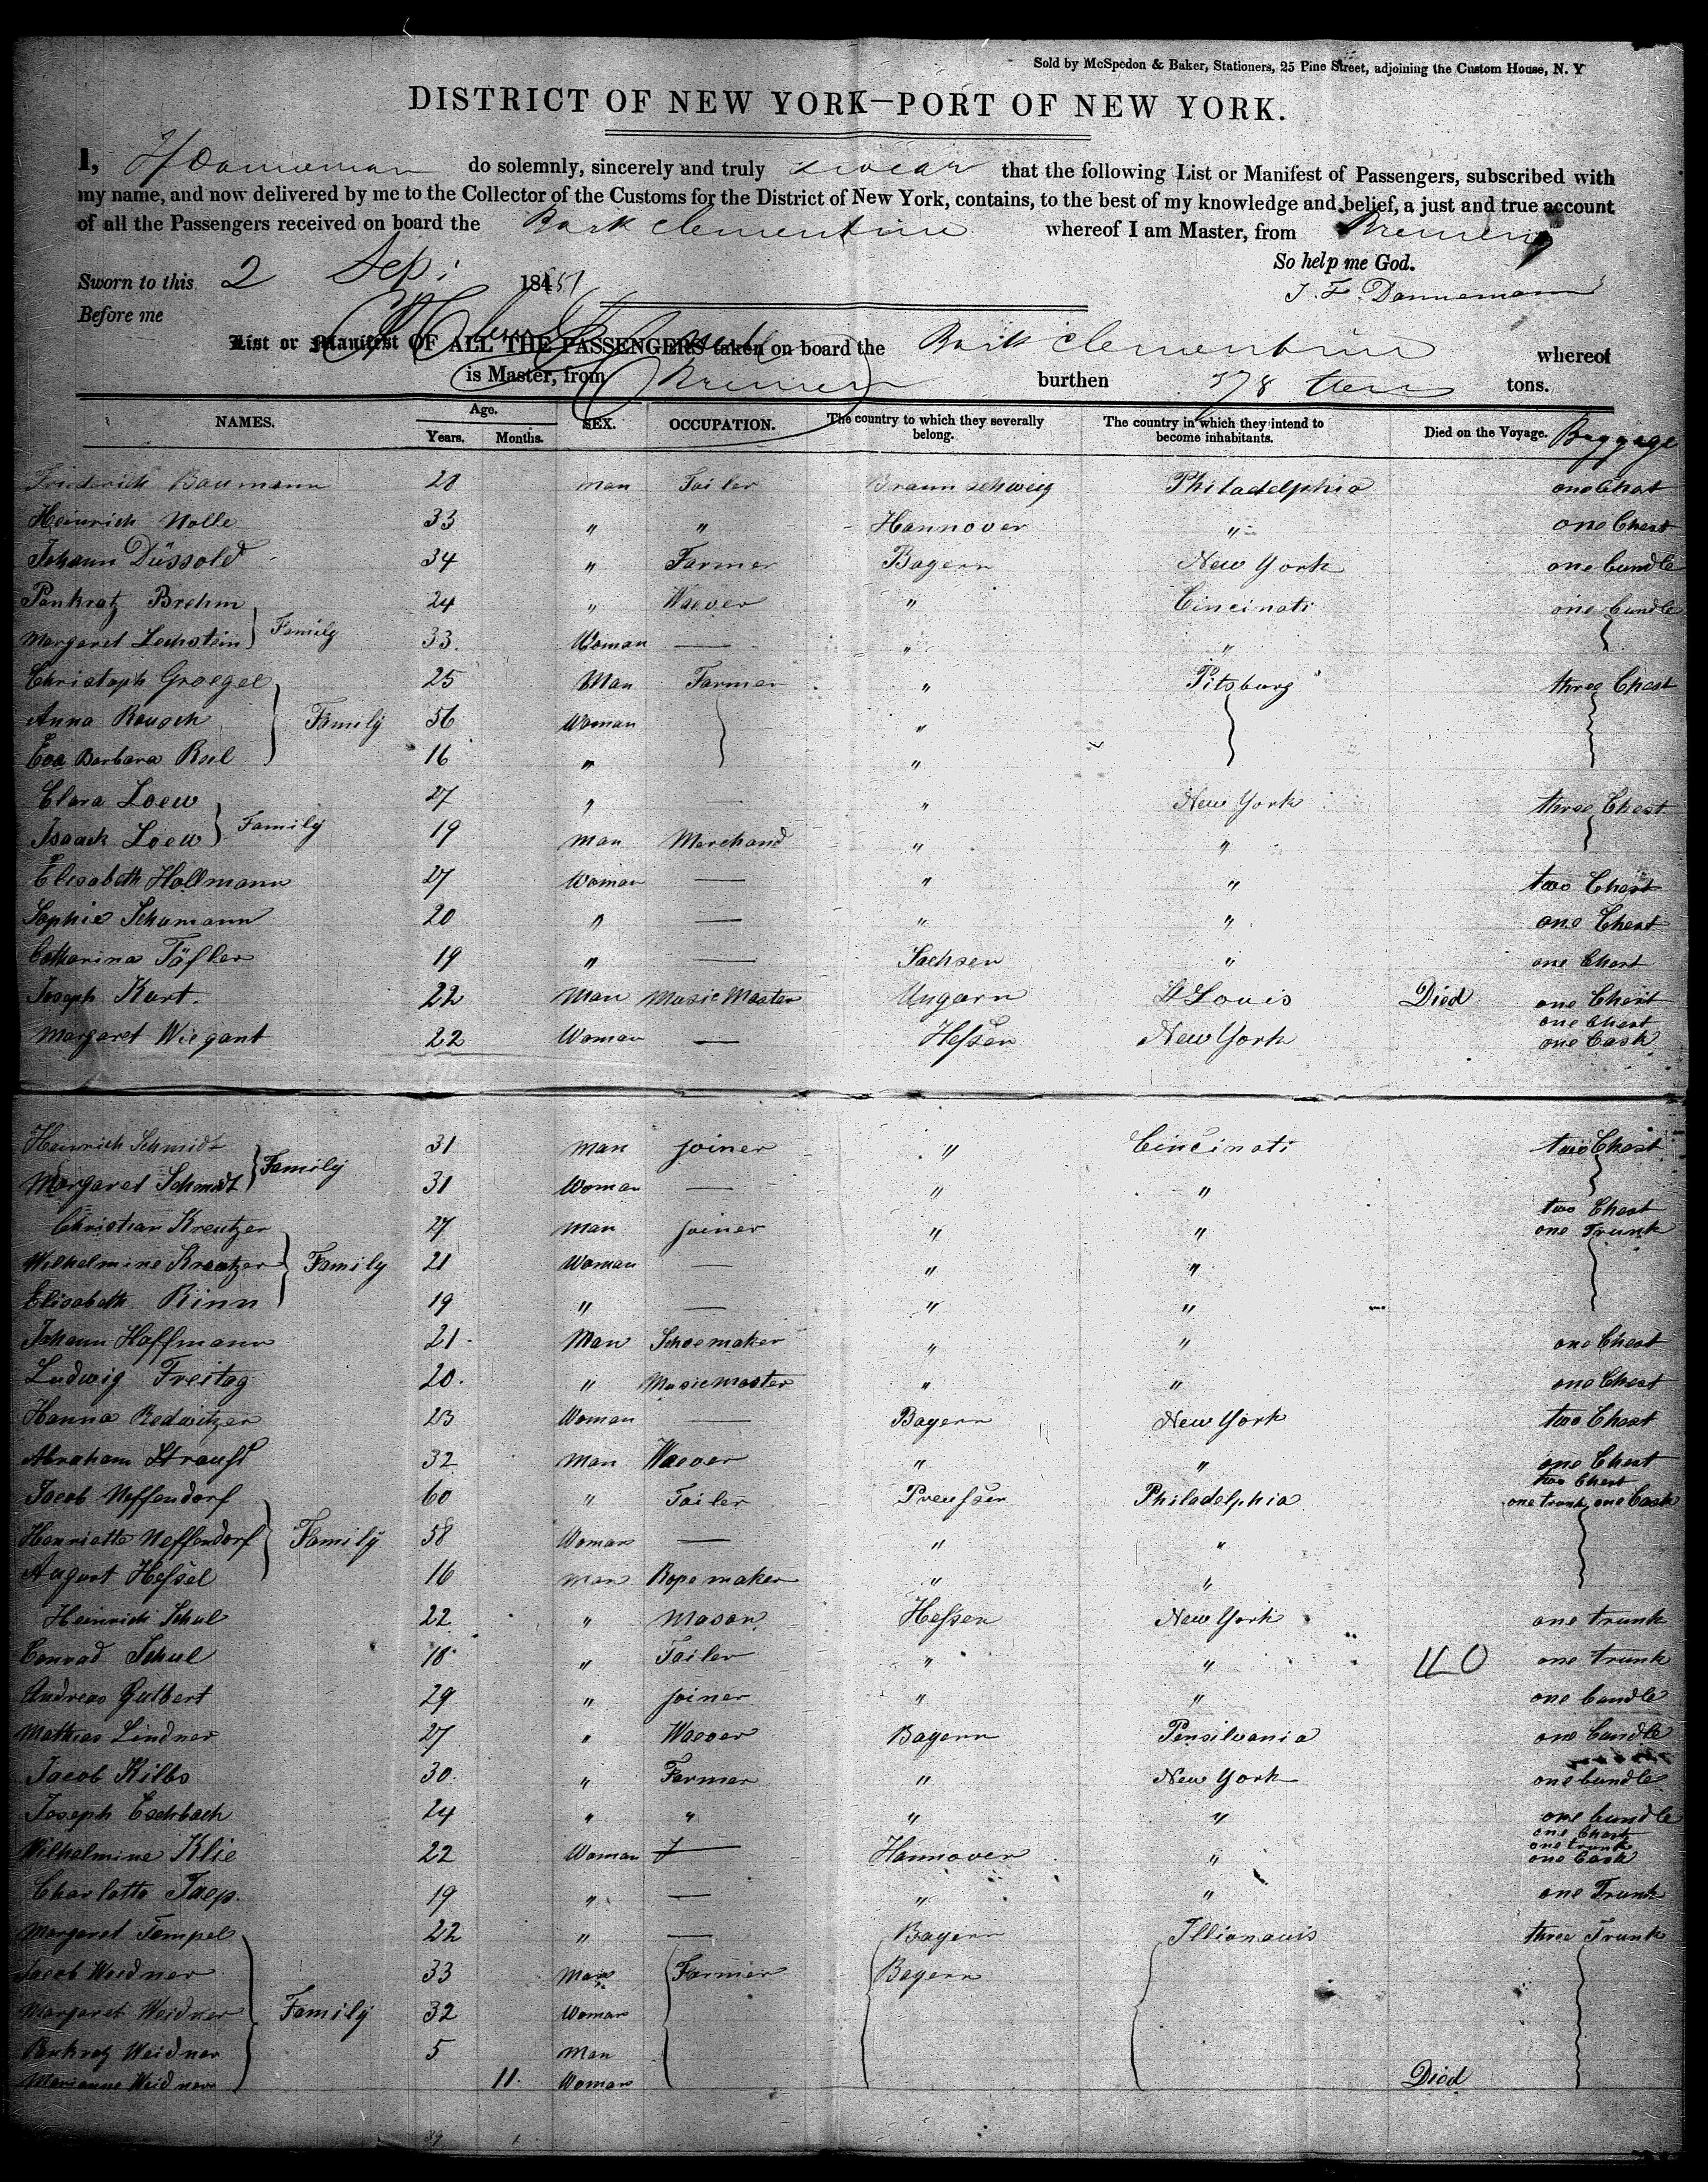 Sold by McSpedon & Baker, Stationers, 25 Pine Street, adjoining the Custom House, N. Y
DISTRICT OF NEW YORK—PORT OF NEW YORK.
I, do solemnly, sincerely and truly swear that the following List or Manifest of Passengers, subscribed with
my name, and now delivered by me to the Collector of the Customs for the District of New York, contains, to the best of my knowledge and belief, a just and true account
of all the Passengers received on board the Bark Clementine whereof I am Master, from Bremen
So help me God.
Sworn to this 2 Sep: 18451 J. F. Dannemann
Before me
List or Manifest OF ALL THE PASSENGERS taken on board the Bark Clementine whereof
is Master, from Bremen burthen 378 tons.
NAMES. Age. Years. Months. SEX. OCCUPATION. The country to which they severally belong. The country in which they intend to become inhabitants. Died on the Voyage. Baggage
Friederich Baumann 28 man Tailer Braunschweig Philadelphia one Chest
Heinrich Nolle 33 " " Hannover " one Chest
Johann Düssold 34 " Farmer Bayern New York one bundle
Pankratz Brehm 24 " Waever " Cincinati one bundle
Margaret Lechstein Family 33. Woman — " "
Christoph Groegel 25 Man Farmer " Pitsburg three Chest
Anna Rausch Family 56 Woman "
Eva Barbara Reel 16 " "
Clara Loew 27 " — " New York three Chest
Isaack Loew Family 19 man Marchand " "
Elisabeth Hollmann 27 Woman — " " two Chest
Sophie Schumann 20 " — " " one Chest
Catharina Töfler 19 " — Sachsen " one Chest
Joseph Kart. 22 Man Music Master Ungarn St Louis Died one Chest
Margaret Wiegant 22 Woman — Hessen New York one Chest one Cask
Heinrich Schmidt 31 man joiner " Cincinati two Chest
Margaret Schmidt Family 31 Woman — " "
Christian Kreutzer 27 man joiner " " two Chest one Trunk
Wilhelmine Kreutzer Family 21 Woman — " "
Elisabeth Rinn 19 " — " "
Johann Hoffmann 21. Man Schoemaker " " one Chest
Ludwig Freitag 20. " Musicmaster " " one Chest
Hanna Redwitzer 23 Woman — Bayern New York two Chest
Abraham Strauss 32 Man Waever " " one Chest
Jacob Neffendorf 60 " Tailer Preussen Philadelphia two Chest one trunk, one Cask
Henriette Neffendorf Family 58 Woman — " "
August Hessel 16 man Rope maker " "
Heinrich Schul 22 " Mason Hessen New York one trunk
Conrad Schul 18 " Tailer " " 40 one trunk
Andreas Gutbert 29 " joiner " " one bundle
Mathias Lindner 27 " Waever Bayern Pensilvania one bundle
Jacob Kilbs 30. " Farmer " New York one bundle
Joseph Eschbach 24 " " " " one bundle
Wilhelmine Klie 22 Woman — Hannover " one Chest one trunk one Cask
Charlotte Taep. 19 " — " " one Trunk
Margaret Tempel 22 " — Bayern Illionouis three Trunk
Jacob Weidner 33 Man Farmer Bayern
Margaret Weidner Family 32 Woman
Pankratz Weidner 5 Man
Marianne Weidner 11. Woman Died
39 1